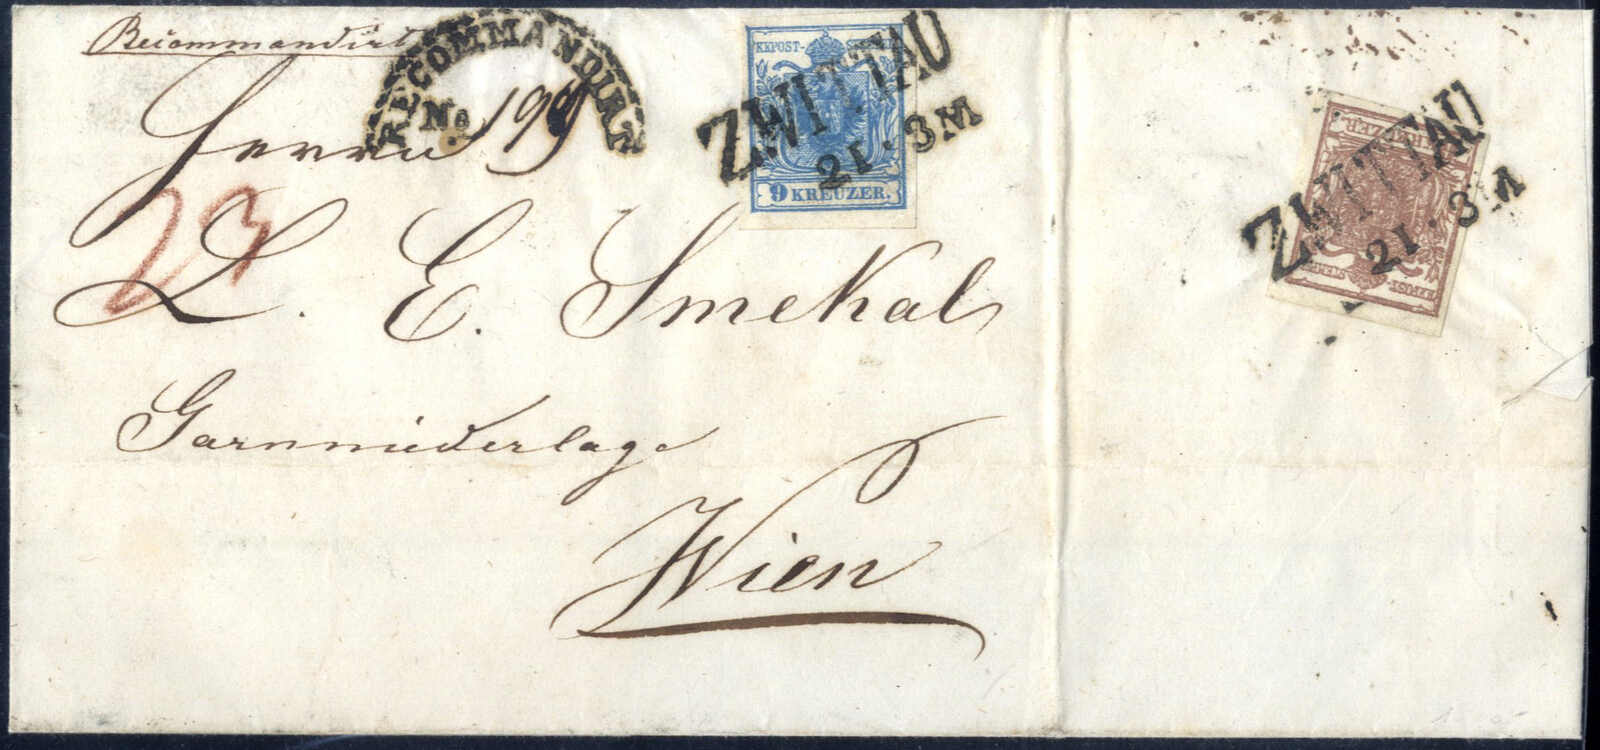 Recommandirt
RECOMMANDIRT
No 199
Herrn
23
L. E. Smekal
Garnniederlage
Wien
KKPOST-STEMPEL
9 KREUZER.
ZWITTAU
21. 3M
KREUZER.
KKPOST-STEMPEL
ZWITTAU
21. 3M